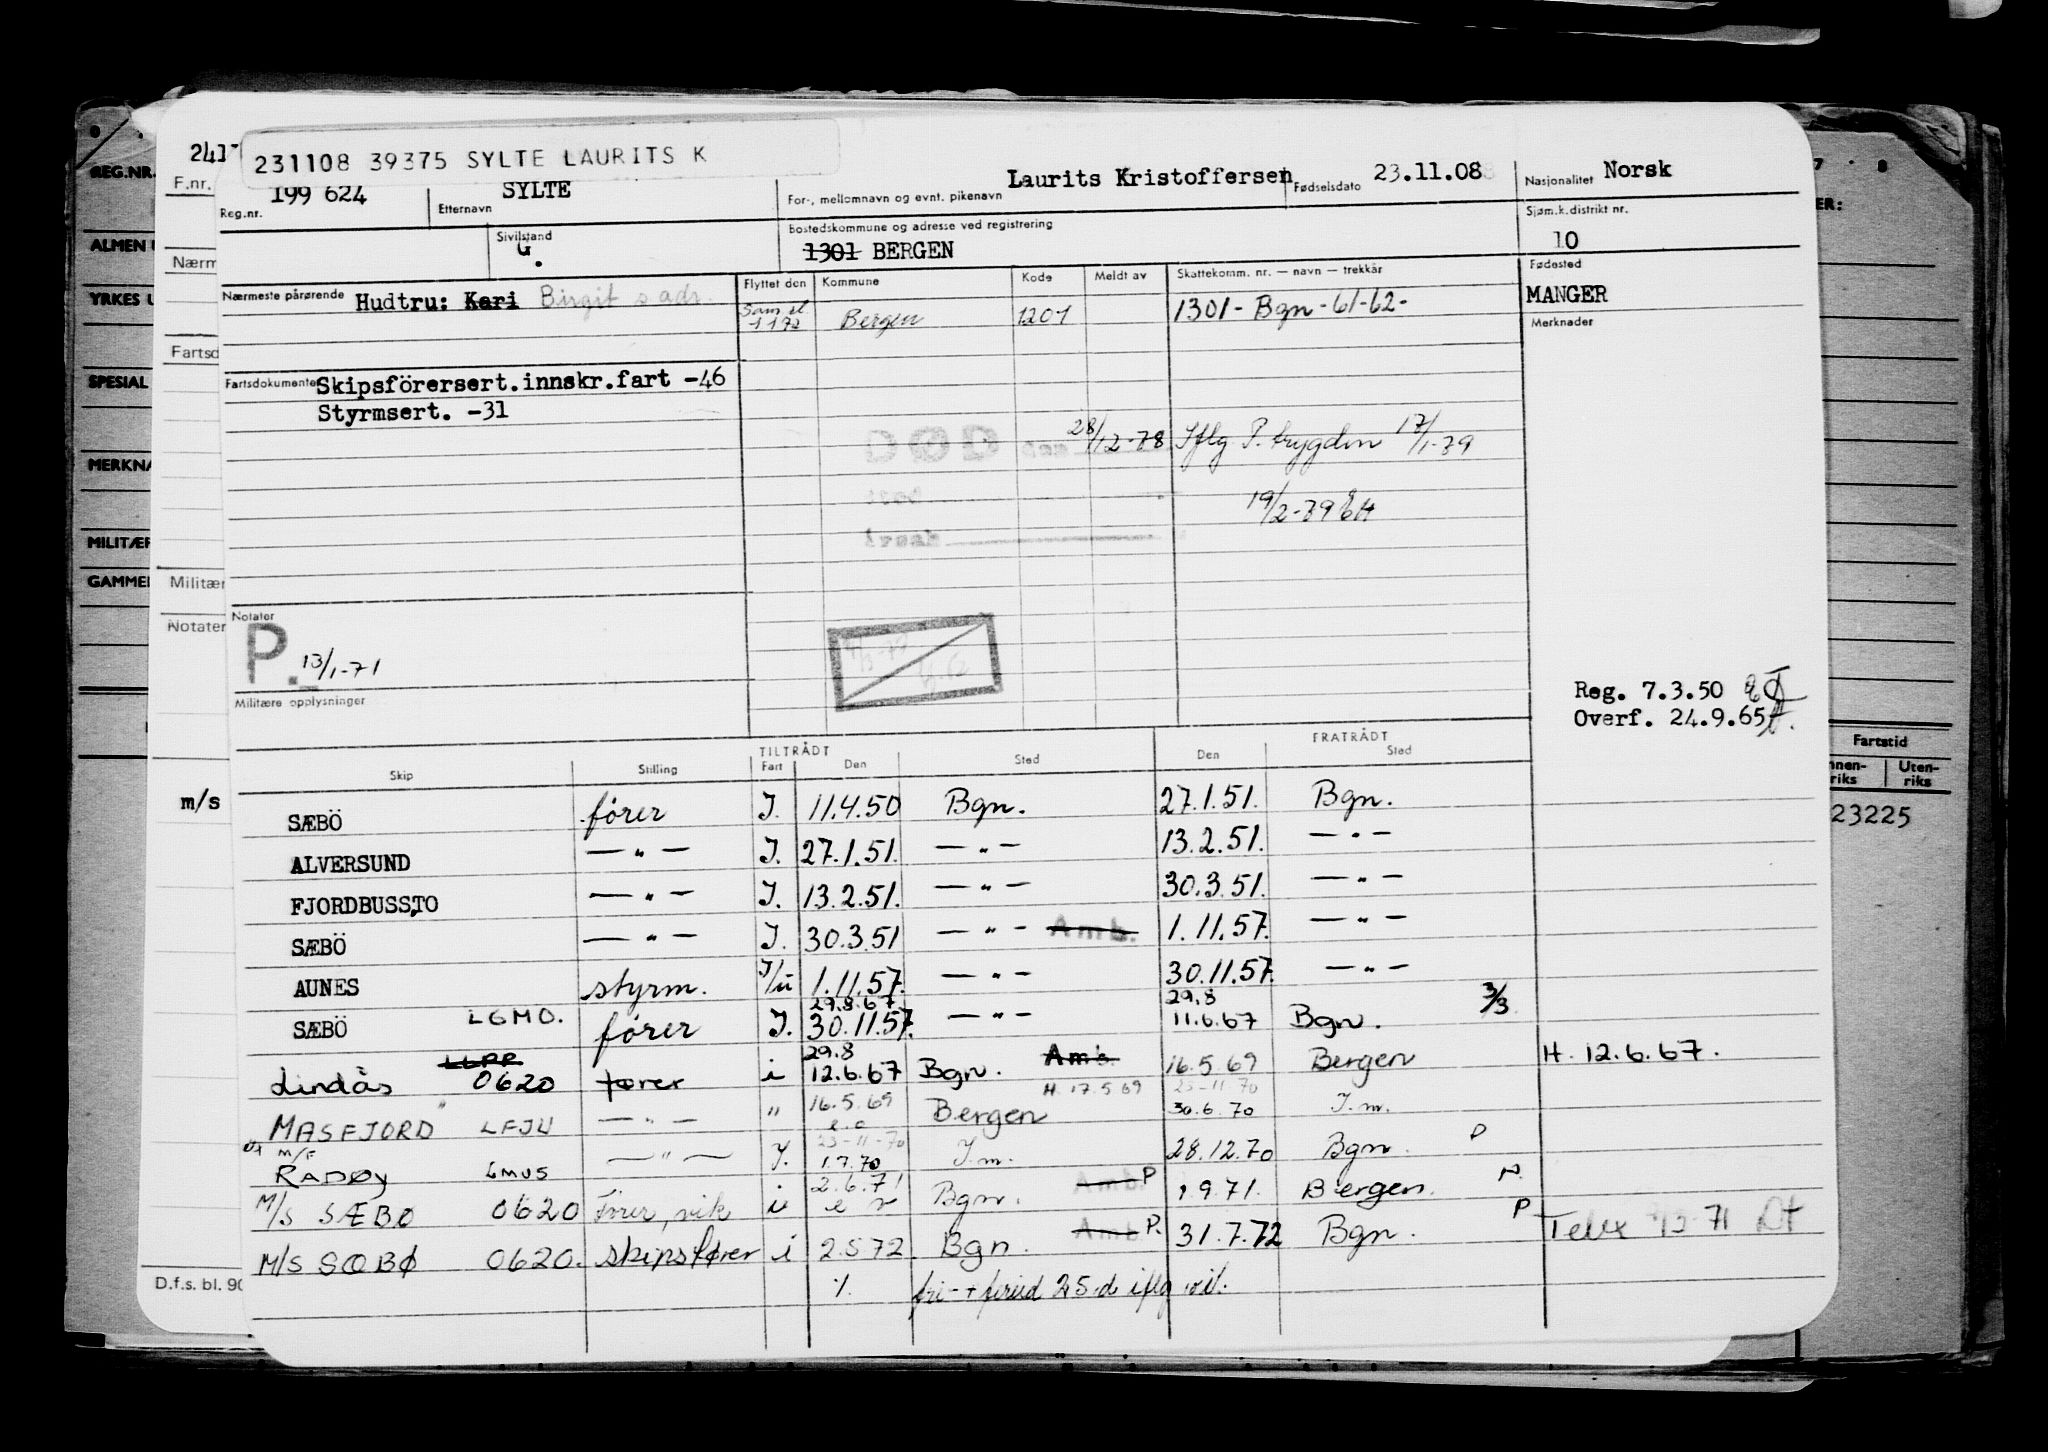 231108 39375 SYLTE LAURITS K
REG.NR.
F.nr.
199 624
Reg.nr.
SYLTE
Etternavn
Laurits Kristoffersen
For-, mellomnavn og evnt. pikenavn
Fødselsdato 23.11.08
Nasjonalitet Norsk
Sivilstand
G.
Bostedskommune og adresse ved registrering
1301 BERGEN
Sjøm.k.distrikt nr.
10
ALMEN
Nærm
Nærmeste pårørende Hudtru: Kari Birgit s adr.
Flyttet den
Kommune
Kode
Meldt av
Skattekomm. nr. — navn — trekkår
Fødested
MANGER
YRKES
1 1 72
Bergen
1201
1301 - Bgn - 61-62-
Merknader
Fartsd
SPESIAL
Fartsdokumenter Skipsförersert.innskr.fart -46
Styrmsert. -31
DØD den 28/12-78 Iflg P. trygden 17/1-79
MERKNA
sted
19/2-79
MILITÆR
årsak
GAMMEL
Militær
Notater
Notater
P. 13/1-71
Militære opplysninger
Reg. 7.3.50
Overf. 24.9.65
Fartstid
Uten-
riks
23225
TILTRÅDT
FRATRÅDT
Skip
Stilling
Fart
Den
Sted
Den
Sted
m/s
SÆBÖ fórer I. 11.4.50 Bgn. 27.1.51. Bgn.
ALVERSUND — " — I. 27.1.51. — " — 13.2.51. — " —
FJORDBUSS,TO — " — I. 13.2.51. — " — 30.3.51. — " —
SÆBÖ — " — I. 30.3.51 — " — Amb. 1.11.57. — " —
AUNES styrm. I/u 1.11.57. — " — 30.11.57. — " —
29.8.67
29.8
SÆBÖ LGMO. fórer I. 30.11.57. — " — 11.6.67 Bgn. 3/3
29.8
Lindås LLPP 0620 fører i 12.6.67 Bgn. Amb. 16.5.69 Bergen H. 12.6.67.
H. 17.5 69
23-11-70
MASFJORD " LFJU — " — " 16.5.69 Bergen 30.6.70 I.m.
23-11-70
M/F
RADØY LMUS — " — I. 1.7.70 I.m. 28.12.70 Bgn. P
M/S SÆBØ 0620 Fører, vik i 2.6.71 Bgn. Amb. P 1.9.71. Bergen.
M/S SÆBØ 0620. skipsfører i 2.5 72 Bgn. Amb P. 31.7.72 Bgn. P Telex
D.f.s. bl. 90